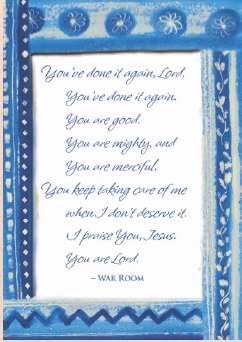 You've done it again, Lord.
You've done it again.
You are good.
You are mighty, and
You are merciful.
You keep taking care of me
when I don't deserve it.
I praise You, Jesus.
You are Lord.
– War Room